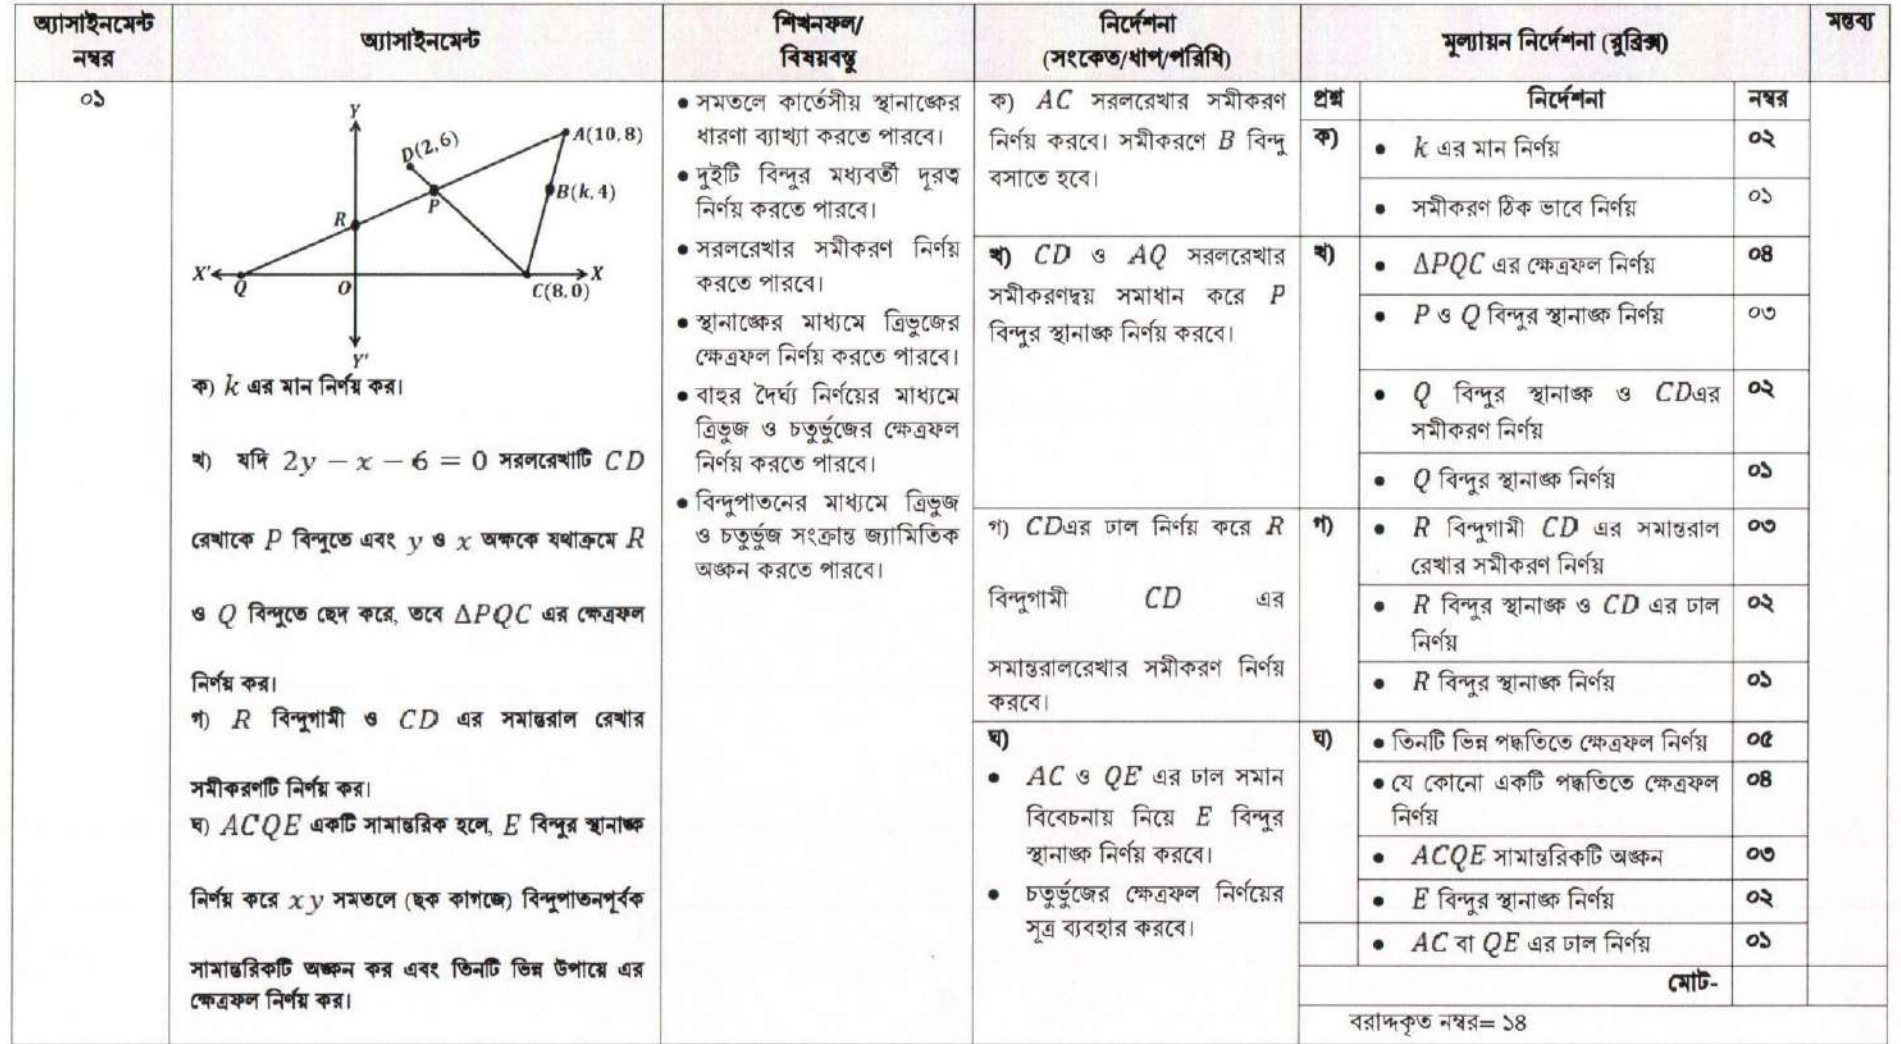 অ্যাসাইনমেন্ট
নম্বর
অ্যাসাইনমেন্ট
শিখনফল/
বিষয়বস্তু
নির্দেশনা
(সংকেত/ধাপ/পরিধি)
মূল্যায়ন নির্দেশনা (রুব্রিক্স)
মন্তব্য
০১
Y
A(10,8)
D(2,6)
B(k,4)
P
R
X′
Q
O
C(8,0)
X
Y′
ক) k এর মান নির্ণয় কর।
খ) যদি 2y − x − 6 = 0 সরলরেখাটি CD
রেখাকে P বিন্দুতে এবং y ও x অক্ষকে যথাক্রমে R
ও Q বিন্দুতে ছেদ করে, তবে ΔPQC এর ক্ষেত্রফল
নির্ণয় কর।
গ) R বিন্দুগামী ও CD এর সমান্তরাল রেখার
সমীকরণটি নির্ণয় কর।
ঘ) ACQE একটি সামান্তরিক হলে, E বিন্দুর স্থানাঙ্ক
নির্ণয় করে xy সমতলে (ছক কাগজে) বিন্দুপাতনপূর্বক
সামান্তরিকটি অঙ্কন কর এবং তিনটি ভিন্ন উপায়ে এর
ক্ষেত্রফল নির্ণয় কর।
● সমতলে কার্তেসীয় স্থানাঙ্কের
ধারণা ব্যাখ্যা করতে পারবে।
● দুইটি বিন্দুর মধ্যবর্তী দূরত্ব
নির্ণয় করতে পারবে।
● সরলরেখার সমীকরণ নির্ণয়
করতে পারবে।
● স্থানাঙ্কের মাধ্যমে ত্রিভুজের
ক্ষেত্রফল নির্ণয় করতে পারবে।
● বাহুর দৈর্ঘ্য নির্ণয়ের মাধ্যমে
ত্রিভুজ ও চতুর্ভুজের ক্ষেত্রফল
নির্ণয় করতে পারবে।
● বিন্দুপাতনের মাধ্যমে ত্রিভুজ
ও চতুর্ভুজ সংক্রান্ত জ্যামিতিক
অঙ্কন করতে পারবে।
ক) AC সরলরেখার সমীকরণ
নির্ণয় করবে। সমীকরণে B বিন্দু
বসাতে হবে।
খ) CD ও AQ সরলরেখার
সমীকরণদ্বয় সমাধান করে P
বিন্দুর স্থানাঙ্ক নির্ণয় করবে।
গ) CDএর ঢাল নির্ণয় করে R
বিন্দুগামী CD এর
সমান্তরালরেখার সমীকরণ নির্ণয়
করবে।
ঘ)
● AC ও QE এর ঢাল সমান
বিবেচনায় নিয়ে E বিন্দুর
স্থানাঙ্ক নির্ণয় করবে।
● চতুর্ভুজের ক্ষেত্রফল নির্ণয়ের
সূত্র ব্যবহার করবে।
প্রশ্ন নির্দেশনা নম্বর
ক) ● k এর মান নির্ণয় ০২
● সমীকরণ ঠিক ভাবে নির্ণয় ০১
খ) ● ΔPQC এর ক্ষেত্রফল নির্ণয় ০৪
● P ও Q বিন্দুর স্থানাঙ্ক নির্ণয় ০৩
● Q বিন্দুর স্থানাঙ্ক ও CDএর ০২
সমীকরণ নির্ণয়
● Q বিন্দুর স্থানাঙ্ক নির্ণয় ০১
গ) ● R বিন্দুগামী CD এর সমান্তরাল ০৩
রেখার সমীকরণ নির্ণয়
● R বিন্দুর স্থানাঙ্ক ও CD এর ঢাল ০২
নির্ণয়
● R বিন্দুর স্থানাঙ্ক নির্ণয় ০১
ঘ) ● তিনটি ভিন্ন পদ্ধতিতে ক্ষেত্রফল নির্ণয় ০৫
● যে কোনো একটি পদ্ধতিতে ক্ষেত্রফল ০৪
নির্ণয়
● ACQE সামান্তরিকটি অঙ্কন ০৩
● E বিন্দুর স্থানাঙ্ক নির্ণয় ০২
● AC বা QE এর ঢাল নির্ণয় ০১
মোট-
বরাদ্দকৃত নম্বর= ১৪